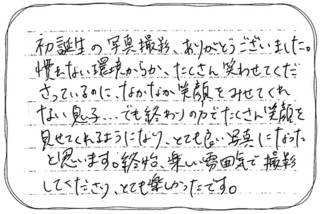 初誕生の写真撮影、ありがとうございました。
慣れない環境からか、たくさん笑わせてくだ
さっているのに、なかなか笑顔をみせてくれ
ない息子…でも終わりの方でたくさん笑顔を
見せてくれるようになり、とても良い写真になった
と思います。終始、楽しい雰囲気で撮影
してくださり、とても楽しかったです。